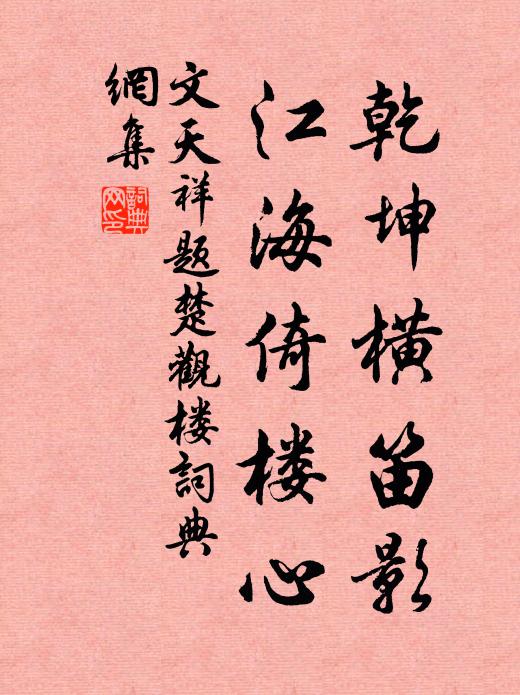 乾坤横笛影
江海倚楼心
文天祥题楚觀楼詞典
網集
詞典網印